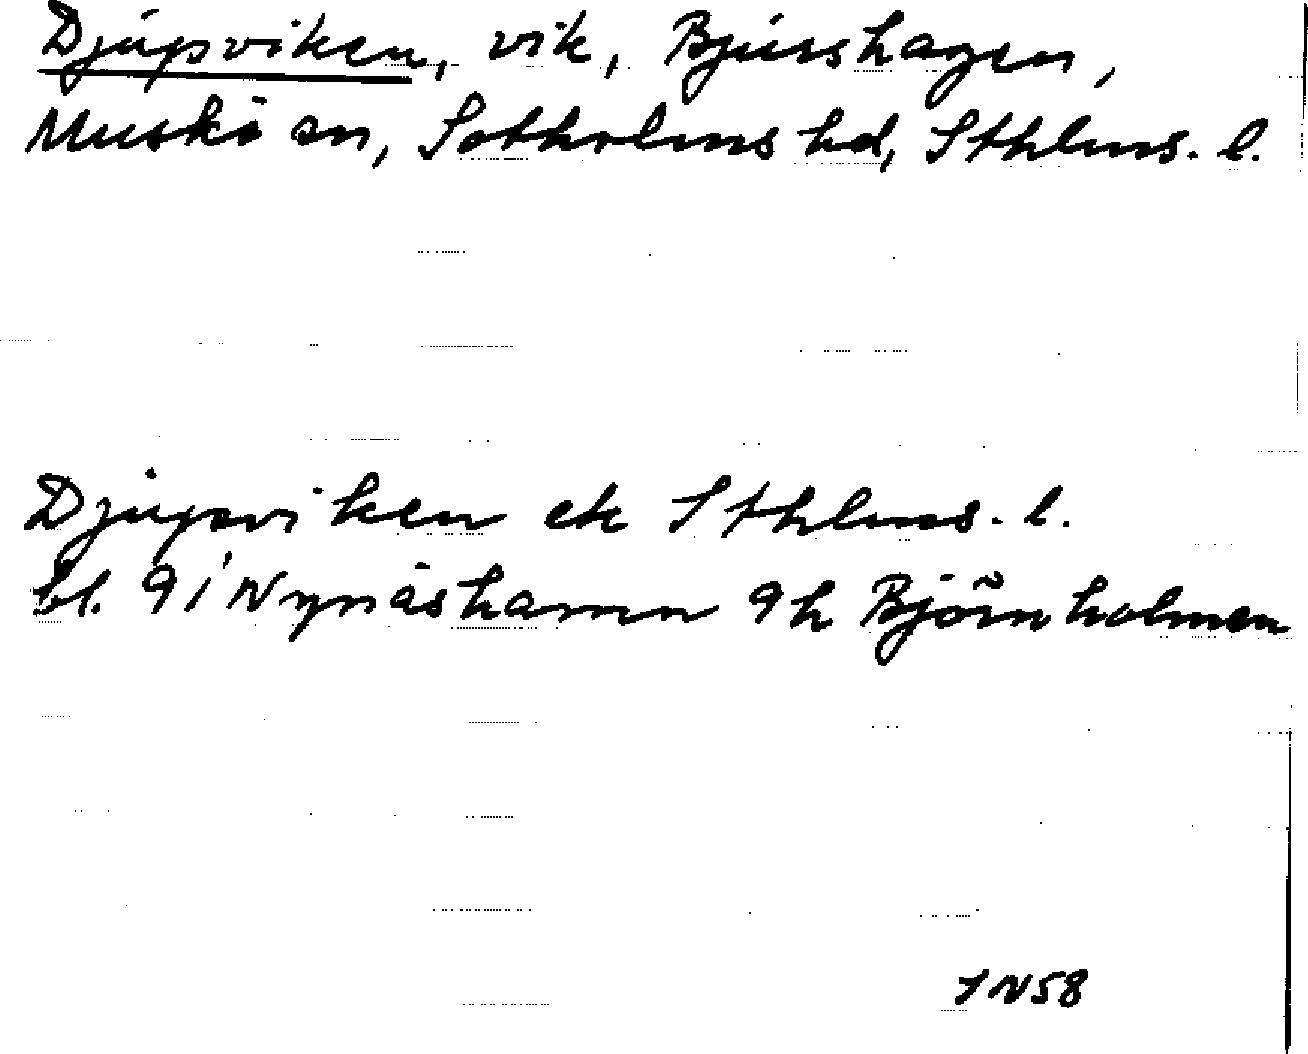 Djupviken, vik, Bjurshagen,
Muskö sn, Sotholms hd, Sthlms. l.
Djupviken ek Sthlms. l.
bl. 9i Nynäshamn 9h Björnholmen
JN58